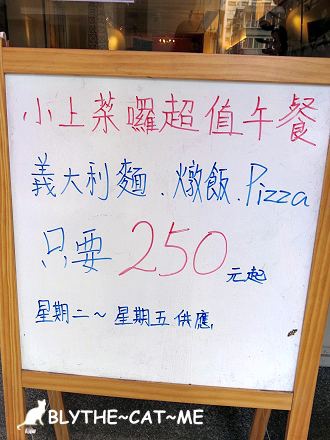 小上菜囉超值午餐
義大利麵.燉飯.Pizza
只要 250 元起
星期二～星期五供應
BLYTHE~CAT~ME